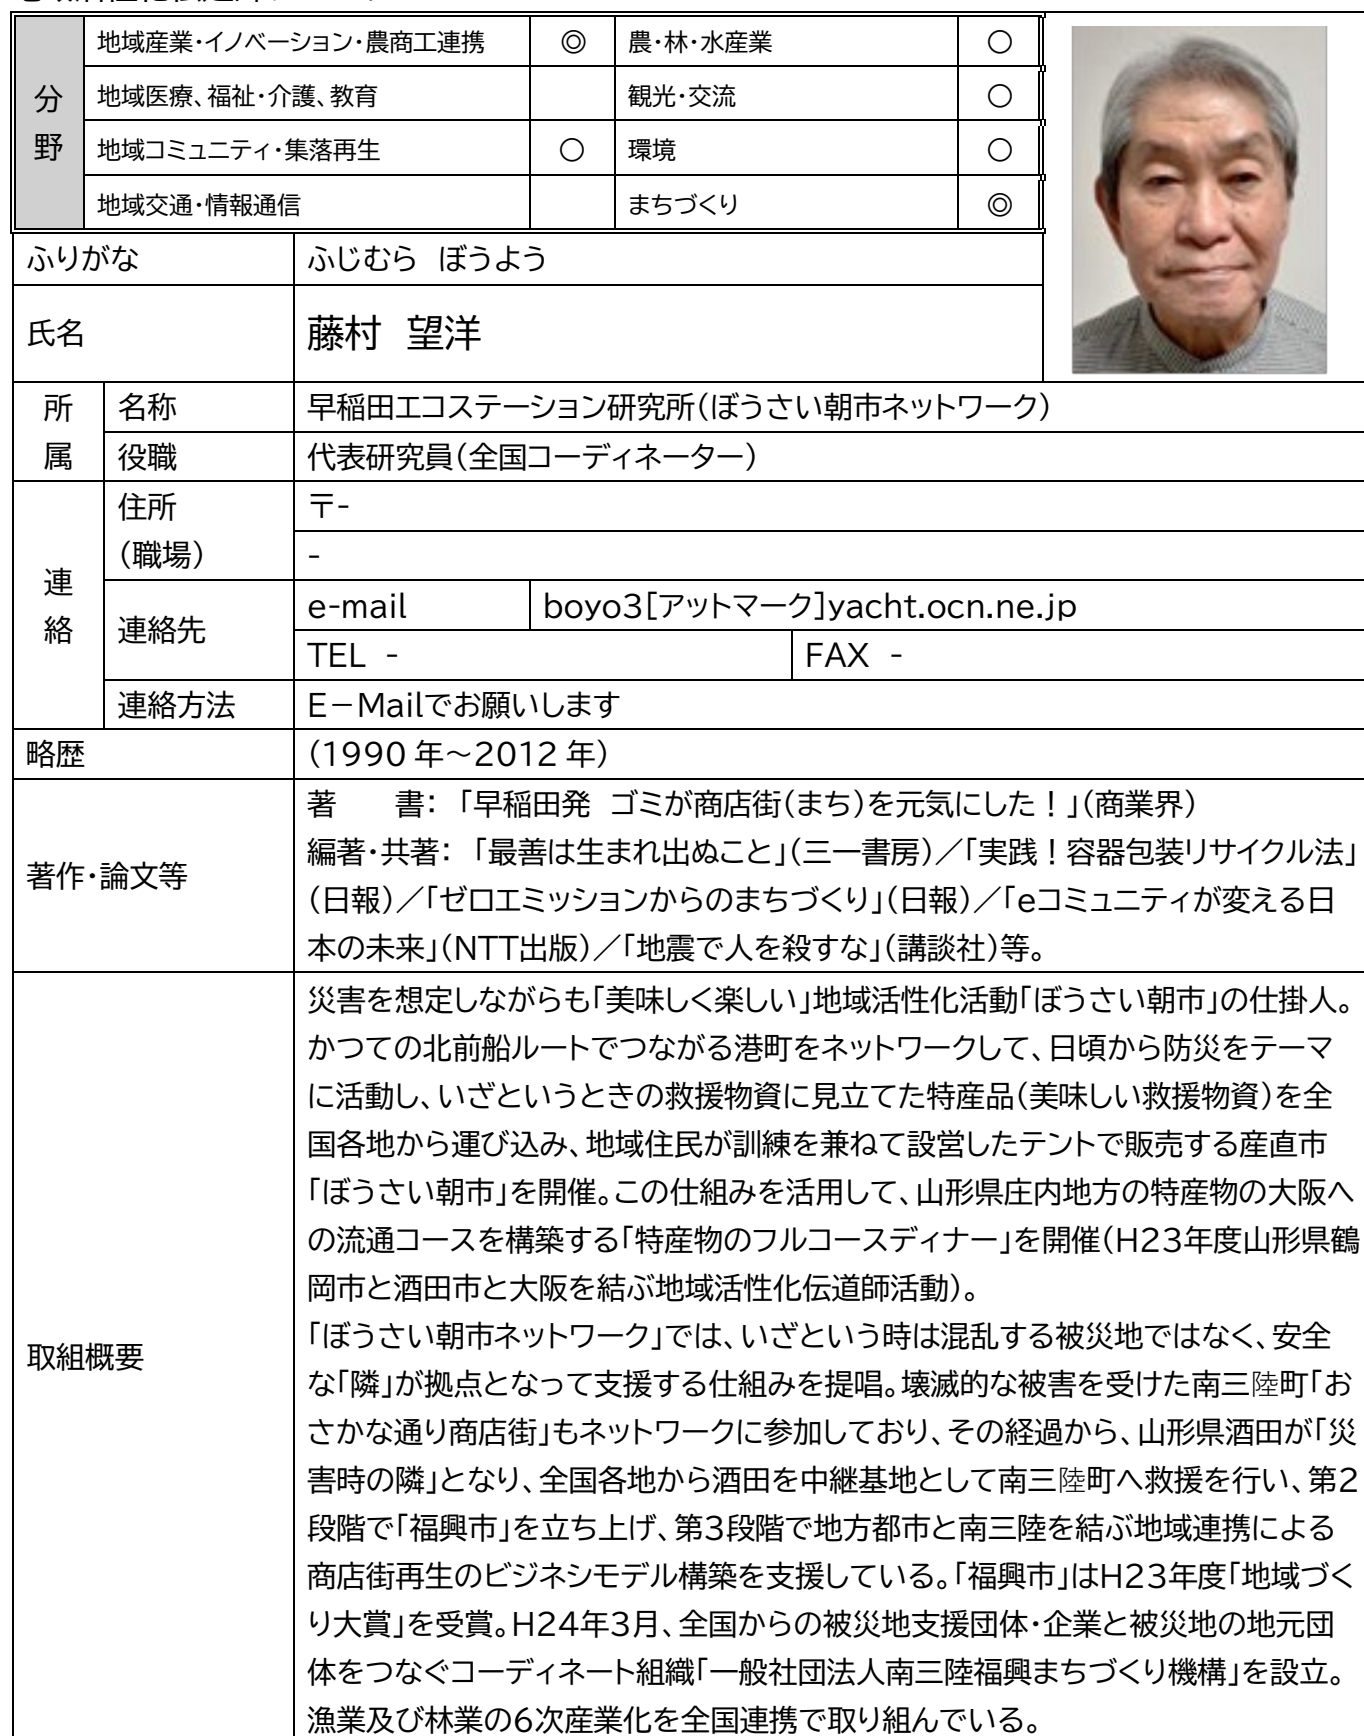 分野
地域産業・イノベーション・農商工連携 ◎ 農・林・水産業 ○
地域医療、福祉・介護、教育 観光・交流 ○
地域コミュニティ・集落再生 ○ 環境 ○
地域交通・情報通信 まちづくり ◎
ふりがな ふじむら ぼうよう
氏名 藤村 望洋
所属 名称 早稲田エコステーション研究所（ぼうさい朝市ネットワーク）
役職 代表研究員（全国コーディネーター）
連絡
住所 〒-
（職場） -
連絡先 e-mail boyo3[アットマーク]yacht.ocn.ne.jp
TEL - FAX -
連絡方法 E－Mailでお願いします
略歴 （1990年～2012年）
著作・論文等
著　　書：「早稲田発 ゴミが商店街（まち）を元気にした！」（商業界）
編著・共著：「最善は生まれ出ぬこと」（三一書房）／「実践！容器包装リサイクル法」
（日報）／「ゼロエミッションからのまちづくり」（日報）／「eコミュニティが変える日
本の未来」（NTT出版）／「地震で人を殺すな」（講談社）等。
取組概要
災害を想定しながらも「美味しく楽しい」地域活性化活動「ぼうさい朝市」の仕掛人。
かつての北前船ルートでつながる港町をネットワークして、日頃から防災をテーマ
に活動し、いざというときの救援物資に見立てた特産品（美味しい救援物資）を全
国各地から運び込み、地域住民が訓練を兼ねて設営したテントで販売する産直市
「ぼうさい朝市」を開催。この仕組みを活用して、山形県庄内地方の特産物の大阪へ
の流通コースを構築する「特産物のフルコースディナー」を開催（H23年度山形県鶴
岡市と酒田市と大阪を結ぶ地域活性化伝道師活動）。
「ぼうさい朝市ネットワーク」では、いざという時は混乱する被災地ではなく、安全
な「隣」が拠点となって支援する仕組みを提唱。壊滅的な被害を受けた南三陸町「お
さかな通り商店街」もネットワークに参加しており、その経過から、山形県酒田が「災
害時の隣」となり、全国各地から酒田を中継基地として南三陸町へ救援を行い、第2
段階で「福興市」を立ち上げ、第3段階で地方都市と南三陸を結ぶ地域連携による
商店街再生のビジネシモデル構築を支援している。「福興市」はH23年度「地域づく
り大賞」を受賞。H24年3月、全国からの被災地支援団体・企業と被災地の地元団
体をつなぐコーディネート組織「一般社団法人南三陸福興まちづくり機構」を設立。
漁業及び林業の6次産業化を全国連携で取り組んでいる。